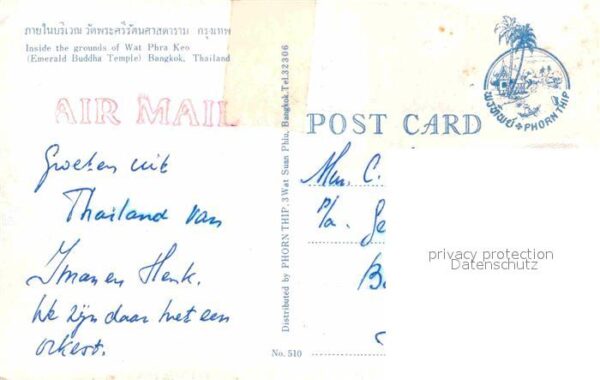 ภายในบริเวณ วัดพระศรีรัตนศาสดาราม กรุงเทพ
Inside the grounds of Wat Phra Keo
(Emerald Buddha Temple) Bangkok, Thailand
AIR MAIL
Groeten uit
Thailand van
Iman en Henk.
We zijn daar met een
orkest.
Distributed by PHORN THIP. 3 Wat Suan Phlu, Bangkok. Tel. 32306
No. 510
POST CARD
พรทิพย์ PHORN THIP
C.
P/a.
privacy protection
Datenschutz